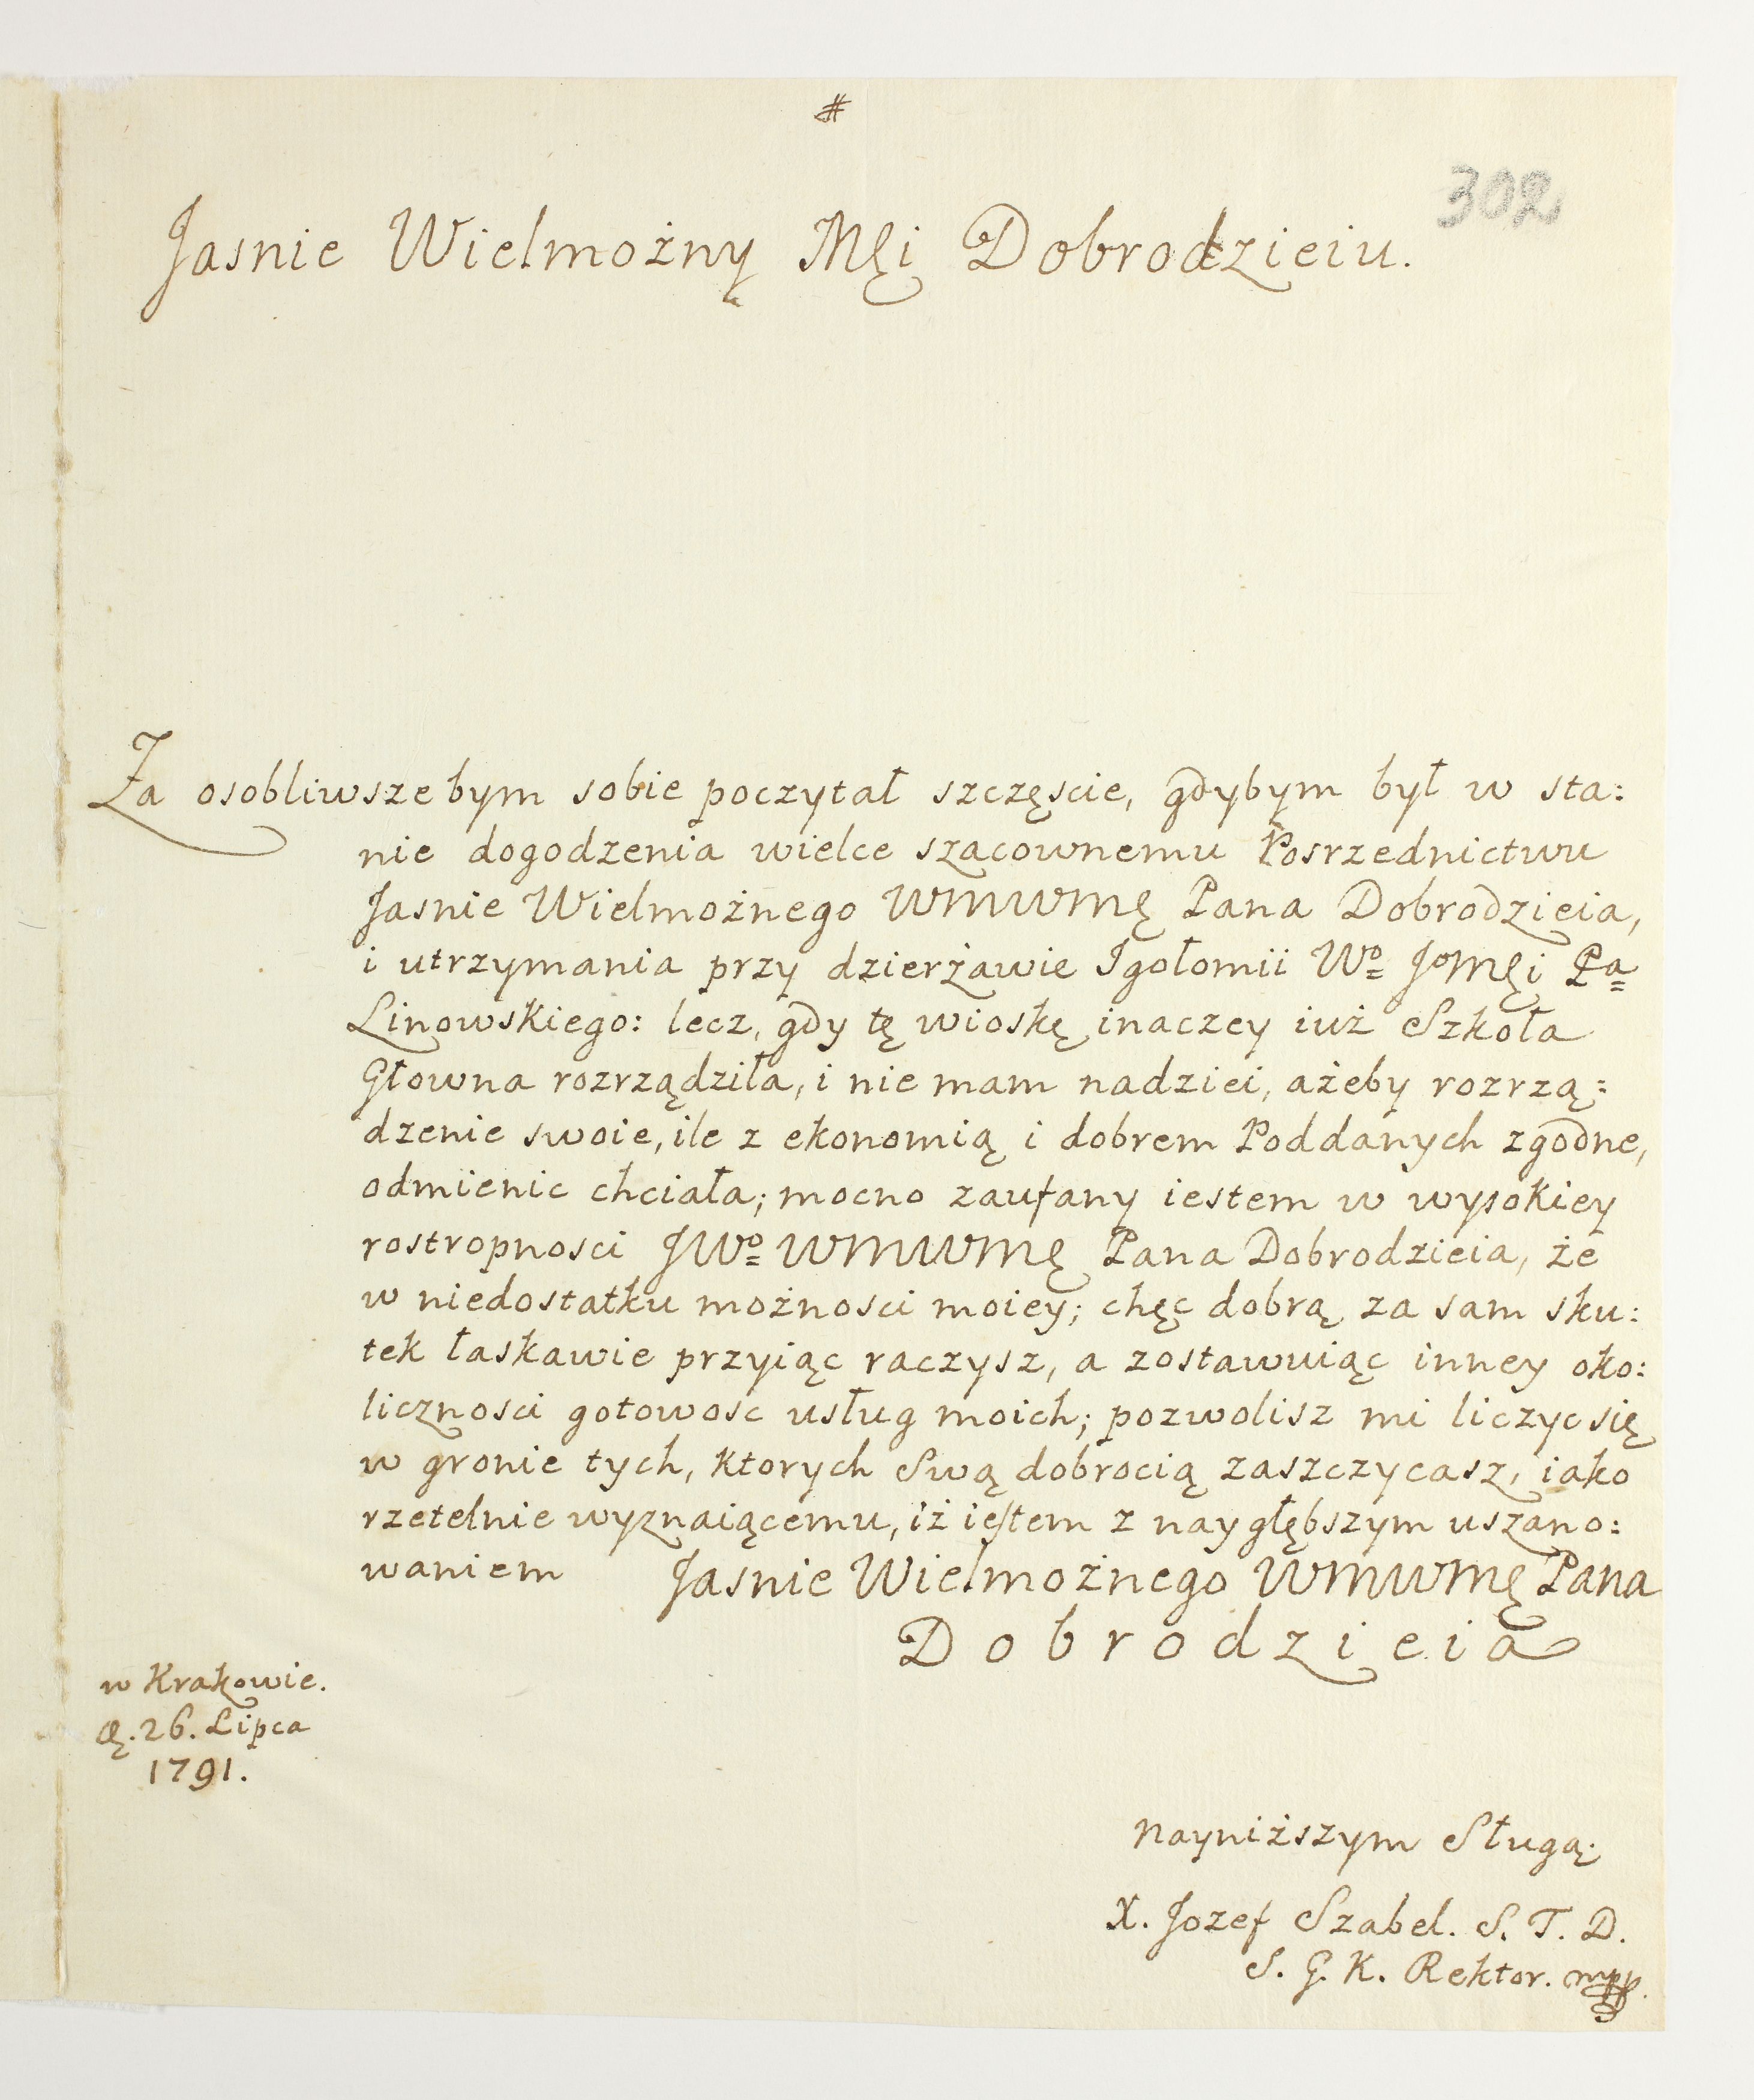 #
302
Jasnie Wielmożny Mći Dobrodzieiu.
Za osobliwsze bym sobie poczytał szczęscie, gdybym był w sta:
nie dogodzenia wielce szacownemu Posrzednictwu
Jasnie Wielmożnego WMWMę Pana Dobrodzieia,
i utrzymania przy dzierżawie Igołomii Wo Jomęi Pa
Linowskiego: lecz, gdy tę wioskę inaczey iuż Szkoła
Głowna rozrządziła, i nie mam nadziei, ażeby rozrzą:
dzenie swoie, ile z ekonomią i dobrem Poddanych zgodne,
odmienic chciała; mocno zaufany iestem w wysokiey
rostropnosci JWo WMWMę Pana Dobrodzieia, że
w niedostatku możnosci moiey; chęc dobrą za sam sku:
tek łaskawie przyiąc raczysz, a zostawuiąc inney oko:
licznosci gotowosc usług moich; pozwolisz mi liczyc się
w gronie tych, ktorych Swą dobrocią zaszczycasz, iako
rzetelnie wyznaiącemu, iż iestem z naygłębszym uszano:
waniem Jasnie Wielmożnego WMWMę Pana
Dobrodzieia
w Krakowie.
d. 26. Lipca
1791.
nayniższym Sługą.
X. Jozef Szabel. S. T. D.
S. G. K. Rektor. mpp.